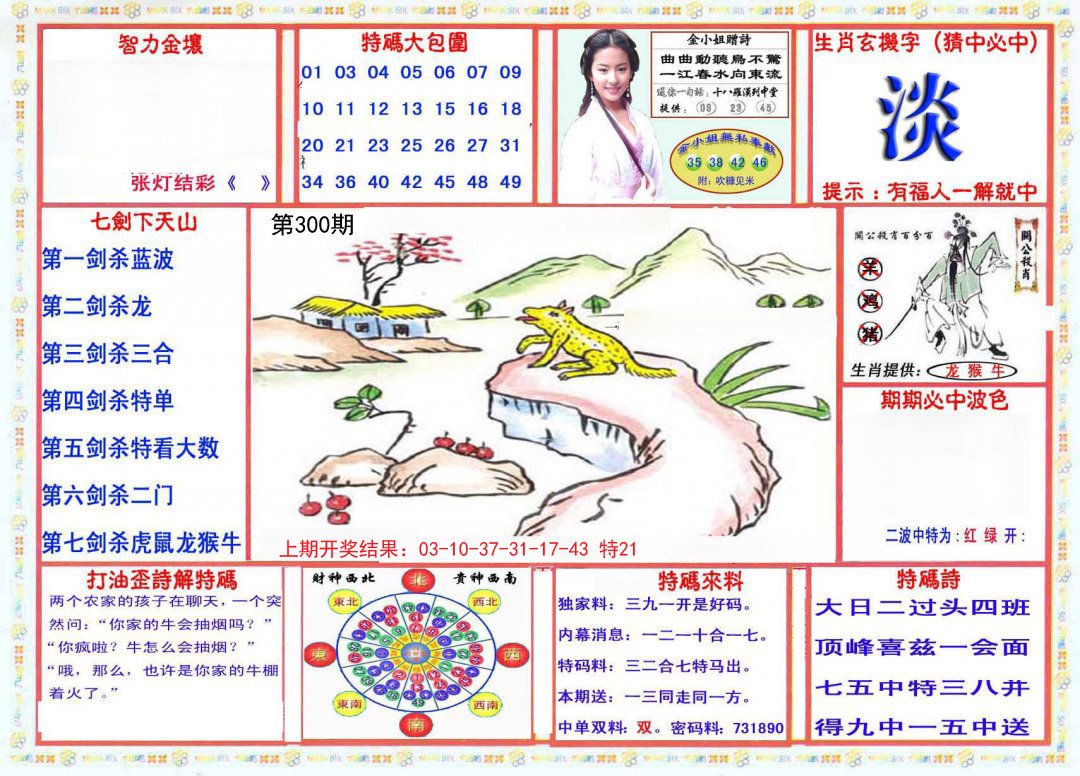 智力金壤
张灯结彩《 》
特碼大包圍
01 03 04 05 06 07 09
10 11 12 13 15 16 18
20 21 23 25 26 27 31
34 36 40 42 45 48 49
金小姐贈詩
曲曲動聽鳥不驚
一江春水向東流
送你一句話：十八羅漢列中堂
提供：08 23 45
金小姐無私奉獻
35 38 42 46
附：吹糠见米
生肖玄機字（猜中必中）
淡
提示：有福人一解就中
七劍下天山
第一剑杀蓝波
第二剑杀龙
第三剑杀三合
第四剑杀特单
第五剑杀特看大数
第六剑杀二门
第七剑杀虎鼠龙猴牛
第300期
上期开奖结果：03-10-37-31-17-43 特21
關公殺肖百分百
關公殺肖
羊
鸡
猪
生肖提供：龙 猴 牛
期期必中波色
二波中特为：红 绿 开：
打油歪詩解特碼
两个农家的孩子在聊天，一个突
然问：“你家的牛会抽烟吗？”
“你疯啦？牛怎么会抽烟？”
“哦，那么，也许是你家的牛棚
着火了。”
财神西北 贵神西南
北
東北 西北
東 西
東南 西南
南
特碼來料
独家料：三九一开是好码。
内幕消息：一二一十合一七。
特码料：三二合七特马出。
本期送：一三同走同一方。
中单双料：双。密码料：731890
特碼詩
大日二过头四班
顶峰喜兹一会面
七五中特三八并
得九中一五中送